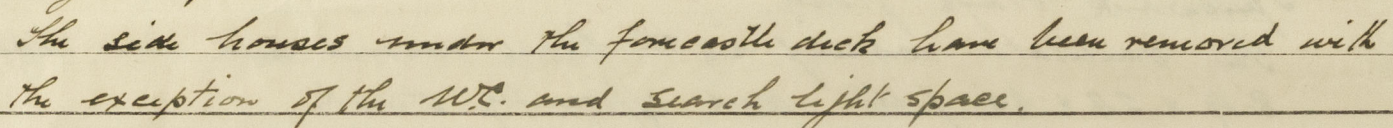 The side houses under the forecastle deck have been removed with
the exception of the W.C. and search light space.